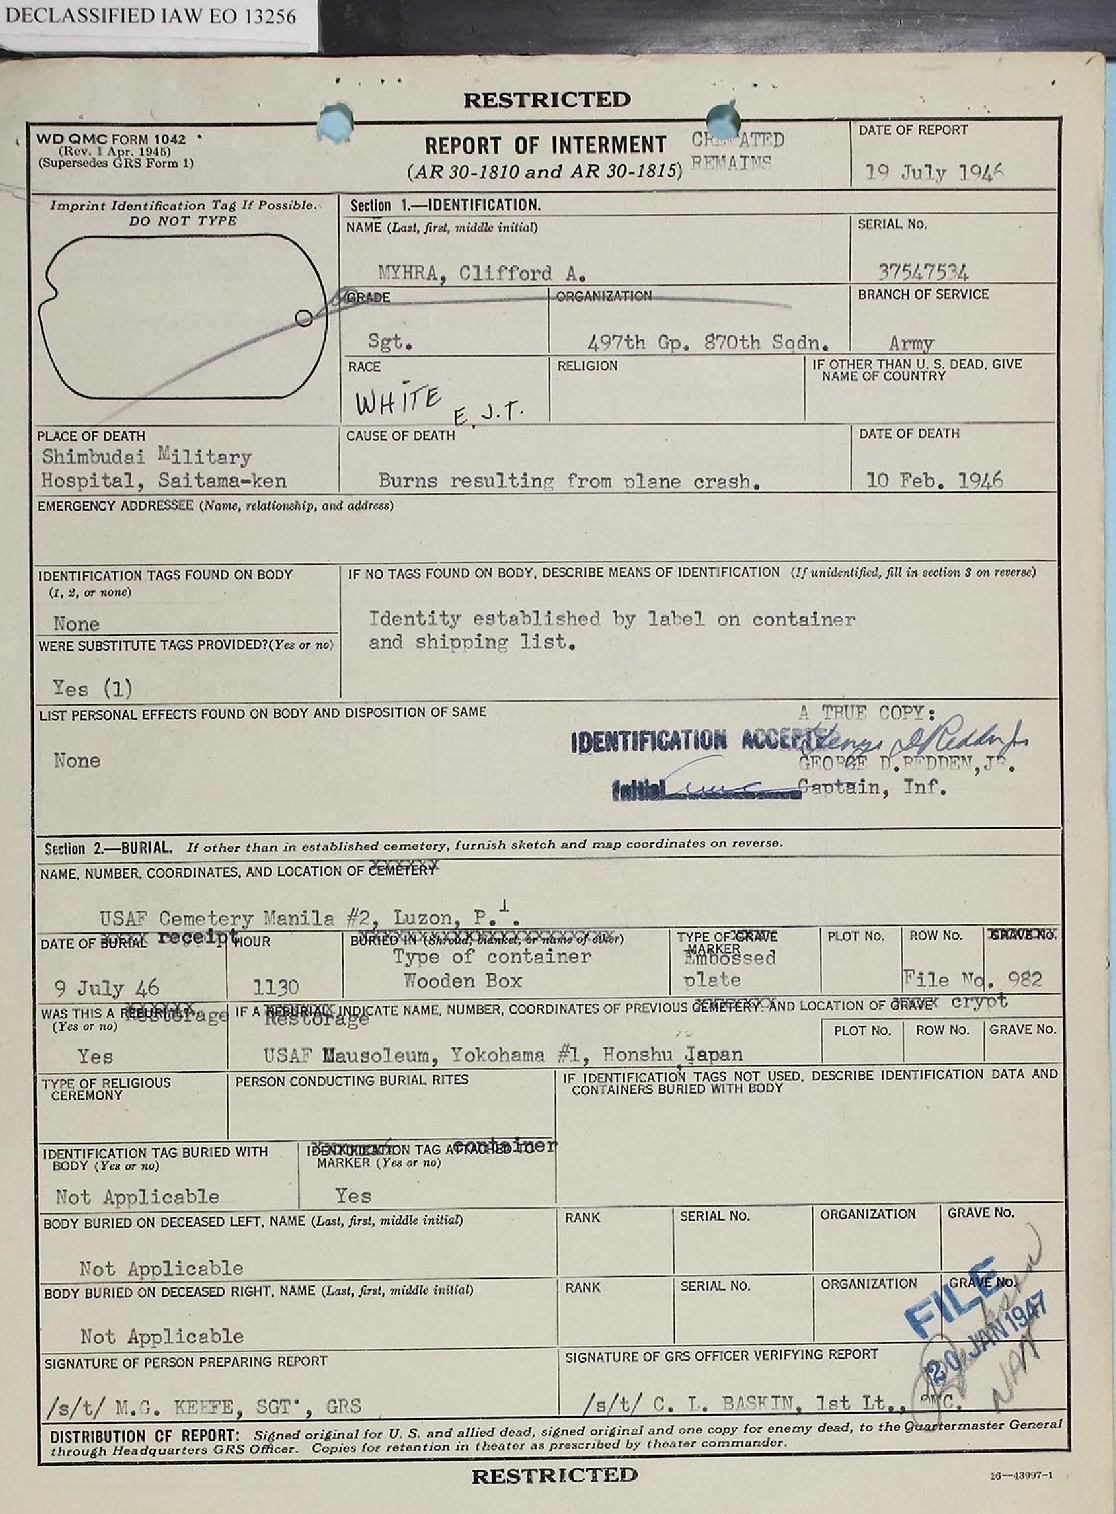 DECLASSIFIED IAW EO 13256
RESTRICTED
WD QMC FORM 1042
(Rev. 1 Apr. 1945)
(Supersedes GRS Form 1)
REPORT OF INTERMENT
(AR 30-1810 and AR 30-1815)
CREMATED
REMAINS
DATE OF REPORT
19 July 1946
Imprint Identification Tag If Possible.
DO NOT TYPE
Section 1.—IDENTIFICATION.
NAME (Last, first, middle initial)
MYHRA, Clifford A.
SERIAL No.
37547534
GRADE
Sgt.
ORGANIZATION
497th Gp. 870th Sqdn.
BRANCH OF SERVICE
Army
RACE
WHITE E.J.T.
RELIGION
IF OTHER THAN U. S. DEAD, GIVE
NAME OF COUNTRY
PLACE OF DEATH
Shimbudai Military
Hospital, Saitama-ken
CAUSE OF DEATH
Burns resulting from plane crash.
DATE OF DEATH
10 Feb. 1946
EMERGENCY ADDRESSEE (Name, relationship, and address)
IDENTIFICATION TAGS FOUND ON BODY
(1, 2, or none)
None
WERE SUBSTITUTE TAGS PROVIDED?(Yes or no)
Yes (1)
IF NO TAGS FOUND ON BODY, DESCRIBE MEANS OF IDENTIFICATION (If unidentified, fill in section 3 on reverse)
Identity established by label on container
and shipping list.
LIST PERSONAL EFFECTS FOUND ON BODY AND DISPOSITION OF SAME
None
A TRUE COPY:
IDENTIFICATION ACCEPTED
George D Redden Jr
GEORGE D. REDDEN, JR.
Initial
Captain, Inf.
Section 2.—BURIAL. If other than in established cemetery, furnish sketch and map coordinates on reverse.
NAME, NUMBER, COORDINATES, AND LOCATION OF CEMETERY
USAF Cemetery Manila #2, Luzon, P.I.
DATE OF BURIAL receipt
9 July 46
HOUR
1130
BURIED IN (Shroud, blanket, or name of other)
Type of container
Wooden Box
TYPE OF GRAVE
MARKER
Embossed
plate
PLOT No.
ROW No.
GRAVE No.
File No. 982
WAS THIS A REBURIAL?
Restorage
(Yes or no)
Yes
IF A REBURIAL, INDICATE NAME, NUMBER, COORDINATES OF PREVIOUS CEMETERY, AND LOCATION OF GRAVE crypt
Restorage
USAF Mausoleum, Yokohama #1, Honshu, Japan
PLOT No.
ROW No.
GRAVE No.
TYPE OF RELIGIOUS
CEREMONY
PERSON CONDUCTING BURIAL RITES
IF IDENTIFICATION TAGS NOT USED, DESCRIBE IDENTIFICATION DATA AND
CONTAINERS BURIED WITH BODY
IDENTIFICATION TAG BURIED WITH
BODY (Yes or no)
Not Applicable
IDENTIFICATION TAG ATTACHED TO container
MARKER (Yes or no)
Yes
BODY BURIED ON DECEASED LEFT, NAME (Last, first, middle initial)
Not Applicable
RANK
SERIAL No.
ORGANIZATION
GRAVE No.
BODY BURIED ON DECEASED RIGHT, NAME (Last, first, middle initial)
Not Applicable
RANK
SERIAL No.
ORGANIZATION
GRAVE No.
FILE
20 JAN 1947
SIGNATURE OF PERSON PREPARING REPORT
/s/t/ M.G. KEEFE, SGT., GRS
SIGNATURE OF GRS OFFICER VERIFYING REPORT
/s/t/ C. L. BASKIN, 1st Lt., QMC.
DISTRIBUTION OF REPORT: Signed original for U. S. and allied dead, signed original and one copy for enemy dead, to the Quartermaster General
through Headquarters GRS Officer. Copies for retention in theater as prescribed by theater commander.
RESTRICTED
16—43997-1